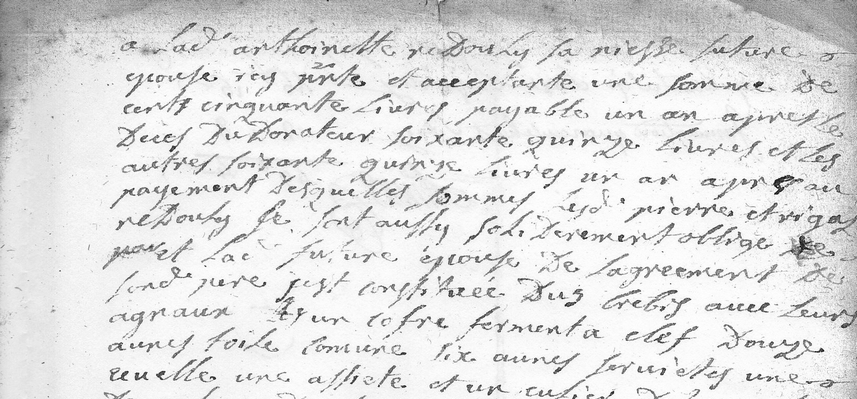 a lad anthoinette redouly sa niesse future
epouse icy pnte et acceptante une somme de
cent cinquante livres payable un an apres le
deces du donateur soixante quinze livres et les
autres soixante quinze livres un an apres au
payement desquelles sommes lesd pierre et rigal
redouly se sont aussy soliderement oblige
et lad future epouse de lagreement de
sond pere sest constituée dus brebis avec leurs
agnaux un cofre ferment a clef douze
aunes toile comune six aunes serviettes une
ecuelle une assiete et un culier